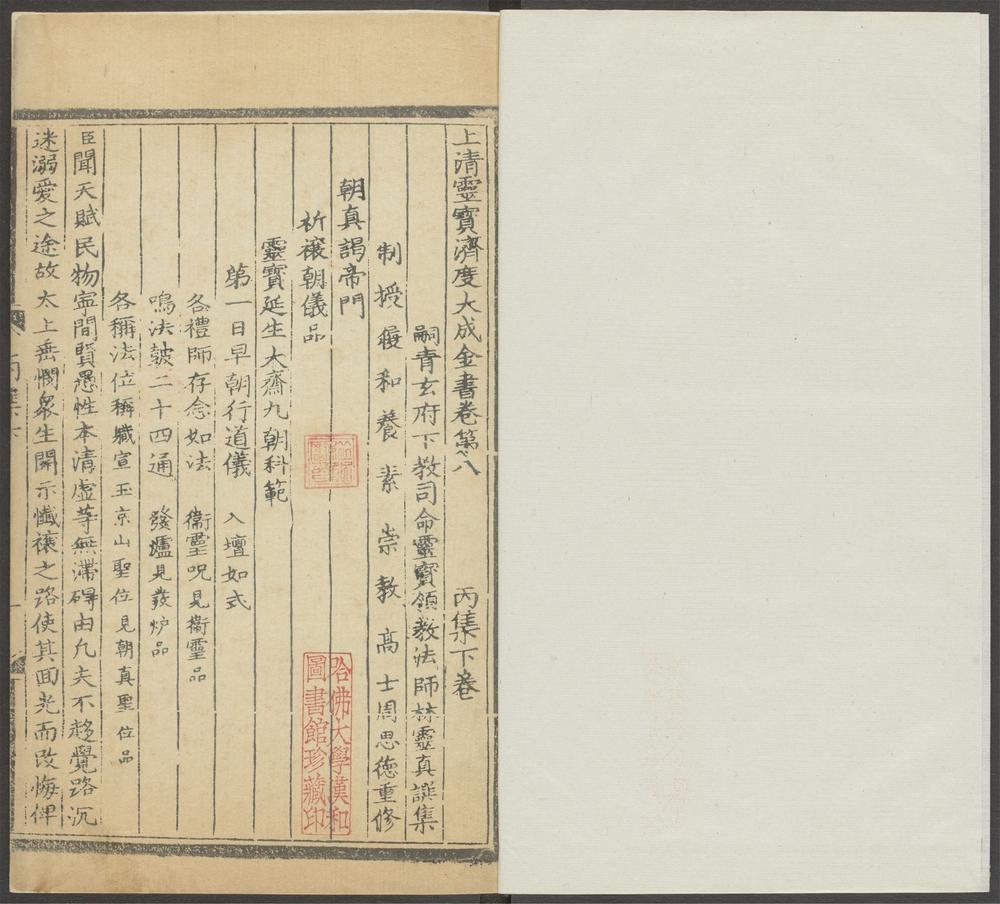 上清靈寶濟度大成金書卷第八　丙集下卷
嗣青玄府下教司命靈寶領教法師林靈真譔集
制授履和養素崇教高士周思德重修
朝真謁帝門
祈禳朝儀品
靈寶延生大齋九朝科範
第一日早朝行道儀　入壇如式
各禮師存念如法　衞靈呪見衞靈品
鳴法皷二十四通　發爐見發炉品
各稱法位稱職宣玉京山聖位見朝真聖位品
臣聞天賦民物寕間賢愚性本清虛等無滯碍由凢夫不趍覺路沉
迷溺愛之途故太上垂憫衆生開示懴禳之路使其囬光而改悔俾
哈佛大學漢和
圖書館珍藏印